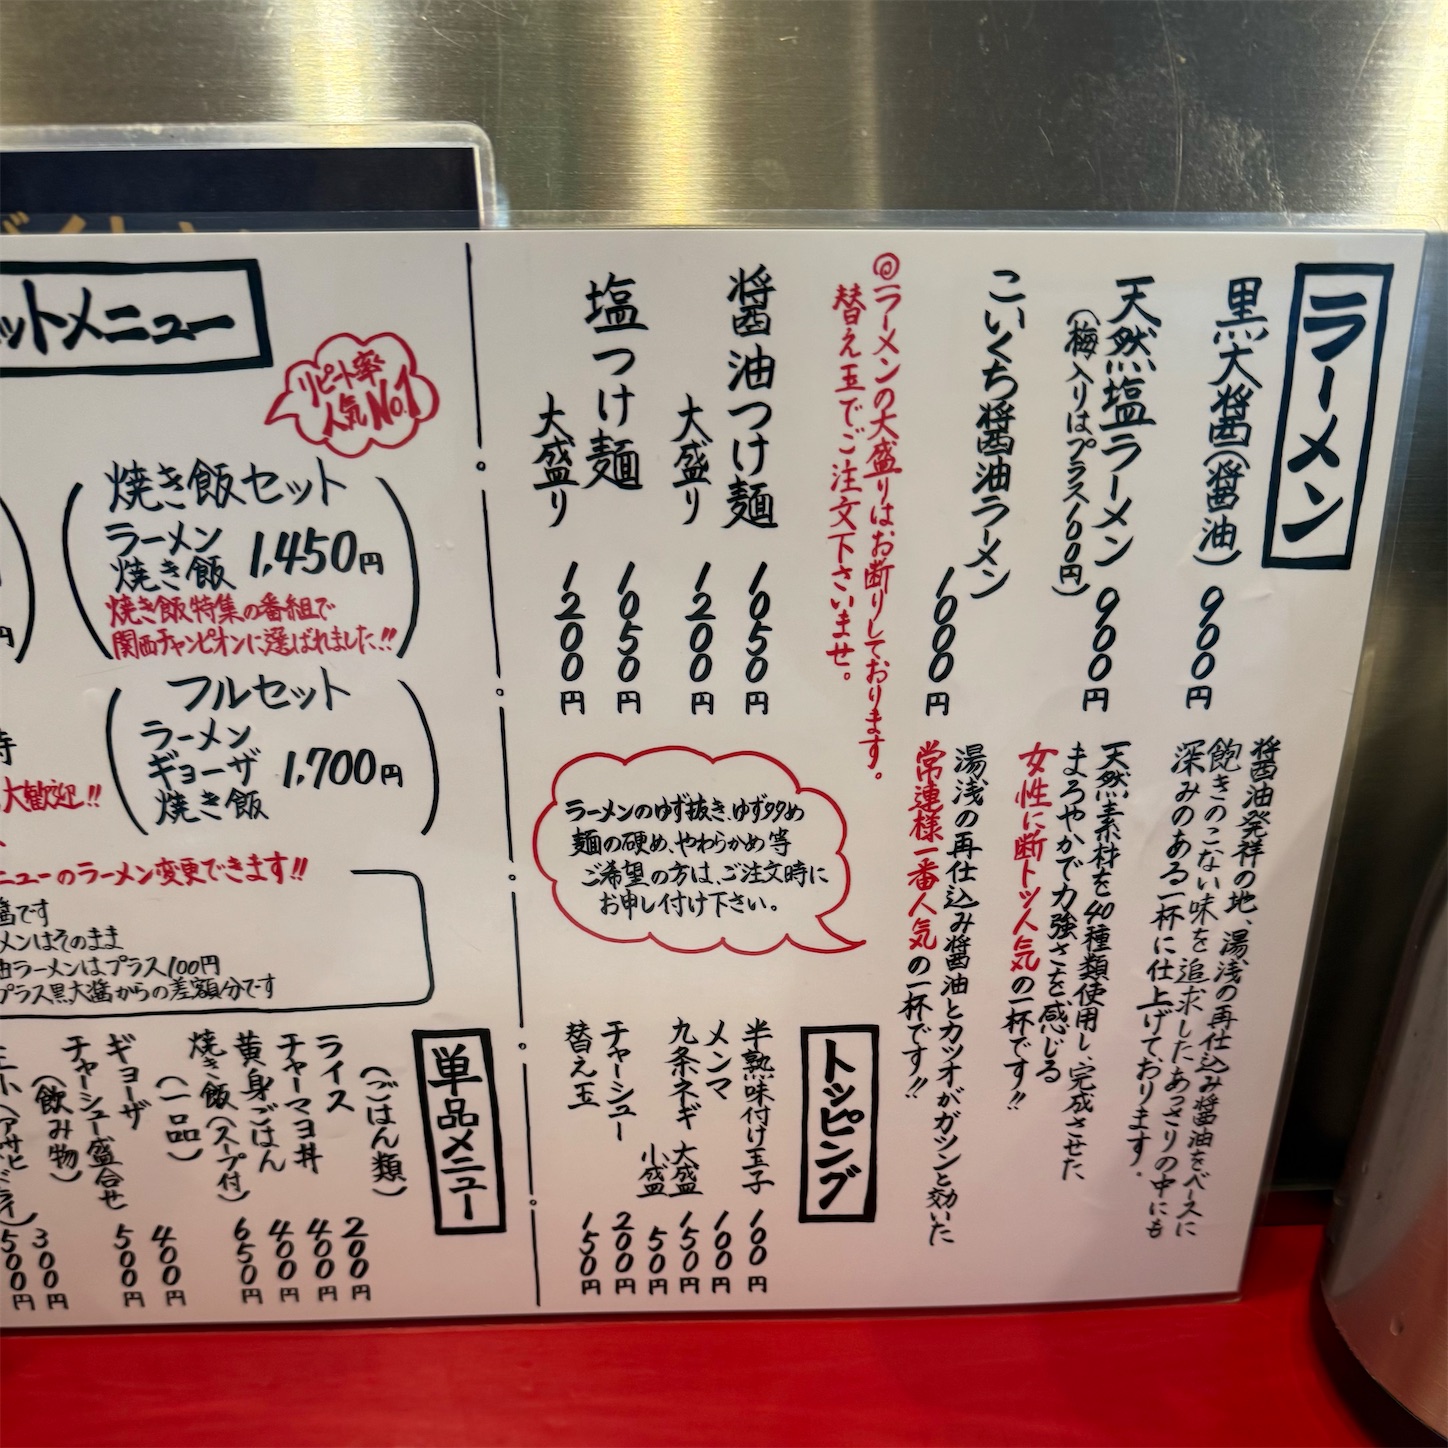 ラーメン
黒大醤(醤油) 900円
醤油発祥の地、湯浅の再仕込み醤油をベースに
飽きのこない味を追求したあっさりの中にも
深みのある一杯に仕上げております。
天然塩ラーメン 900円
(梅入りはプラス100円)
天然素材を40種類使用し、完成させた
まろやかで力強さを感じる
女性に断トツ人気の一杯です!!
こいくち醤油ラーメン 1000円
湯浅の再仕込み醤油とカツオがガツンと効いた
常連様一番人気の一杯です!!
◎ラーメンの大盛りはお断りしております。
替え玉でご注文下さいませ。
醤油つけ麺 1050円
大盛り 1200円
塩つけ麺 1050円
大盛り 1200円
ラーメンのゆず抜き、ゆず多め
麺の硬め、やわらかめ等
ご希望の方は、ご注文時に
お申し付け下さい。
トッピング
半熟味付け玉子 100円
メンマ 100円
九条ネギ 大盛 150円
小盛 50円
チャーシュー 200円
替え玉 150円
ットメニュー
リピート率
人気No.1
焼き飯セット
ラーメン
焼き飯 1,450円
焼き飯特集の番組で
関西チャンピオンに選ばれました!!
フルセット
ラーメン
ギョーザ
焼き飯 1,700円
大歓迎!!
ニューのラーメン変更できます!!
醤です
メンはそのまま
油ラーメンはプラス100円
プラス黒大醤からの差額分です
単品メニュー
(ごはん類)
ライス 200円
チャーマヨ丼 400円
黄身ごはん 400円
焼き飯(スープ付) 650円
(一品)
ギョーザ 400円
チャーシュー盛合せ 500円
(飲み物)
300円
500円